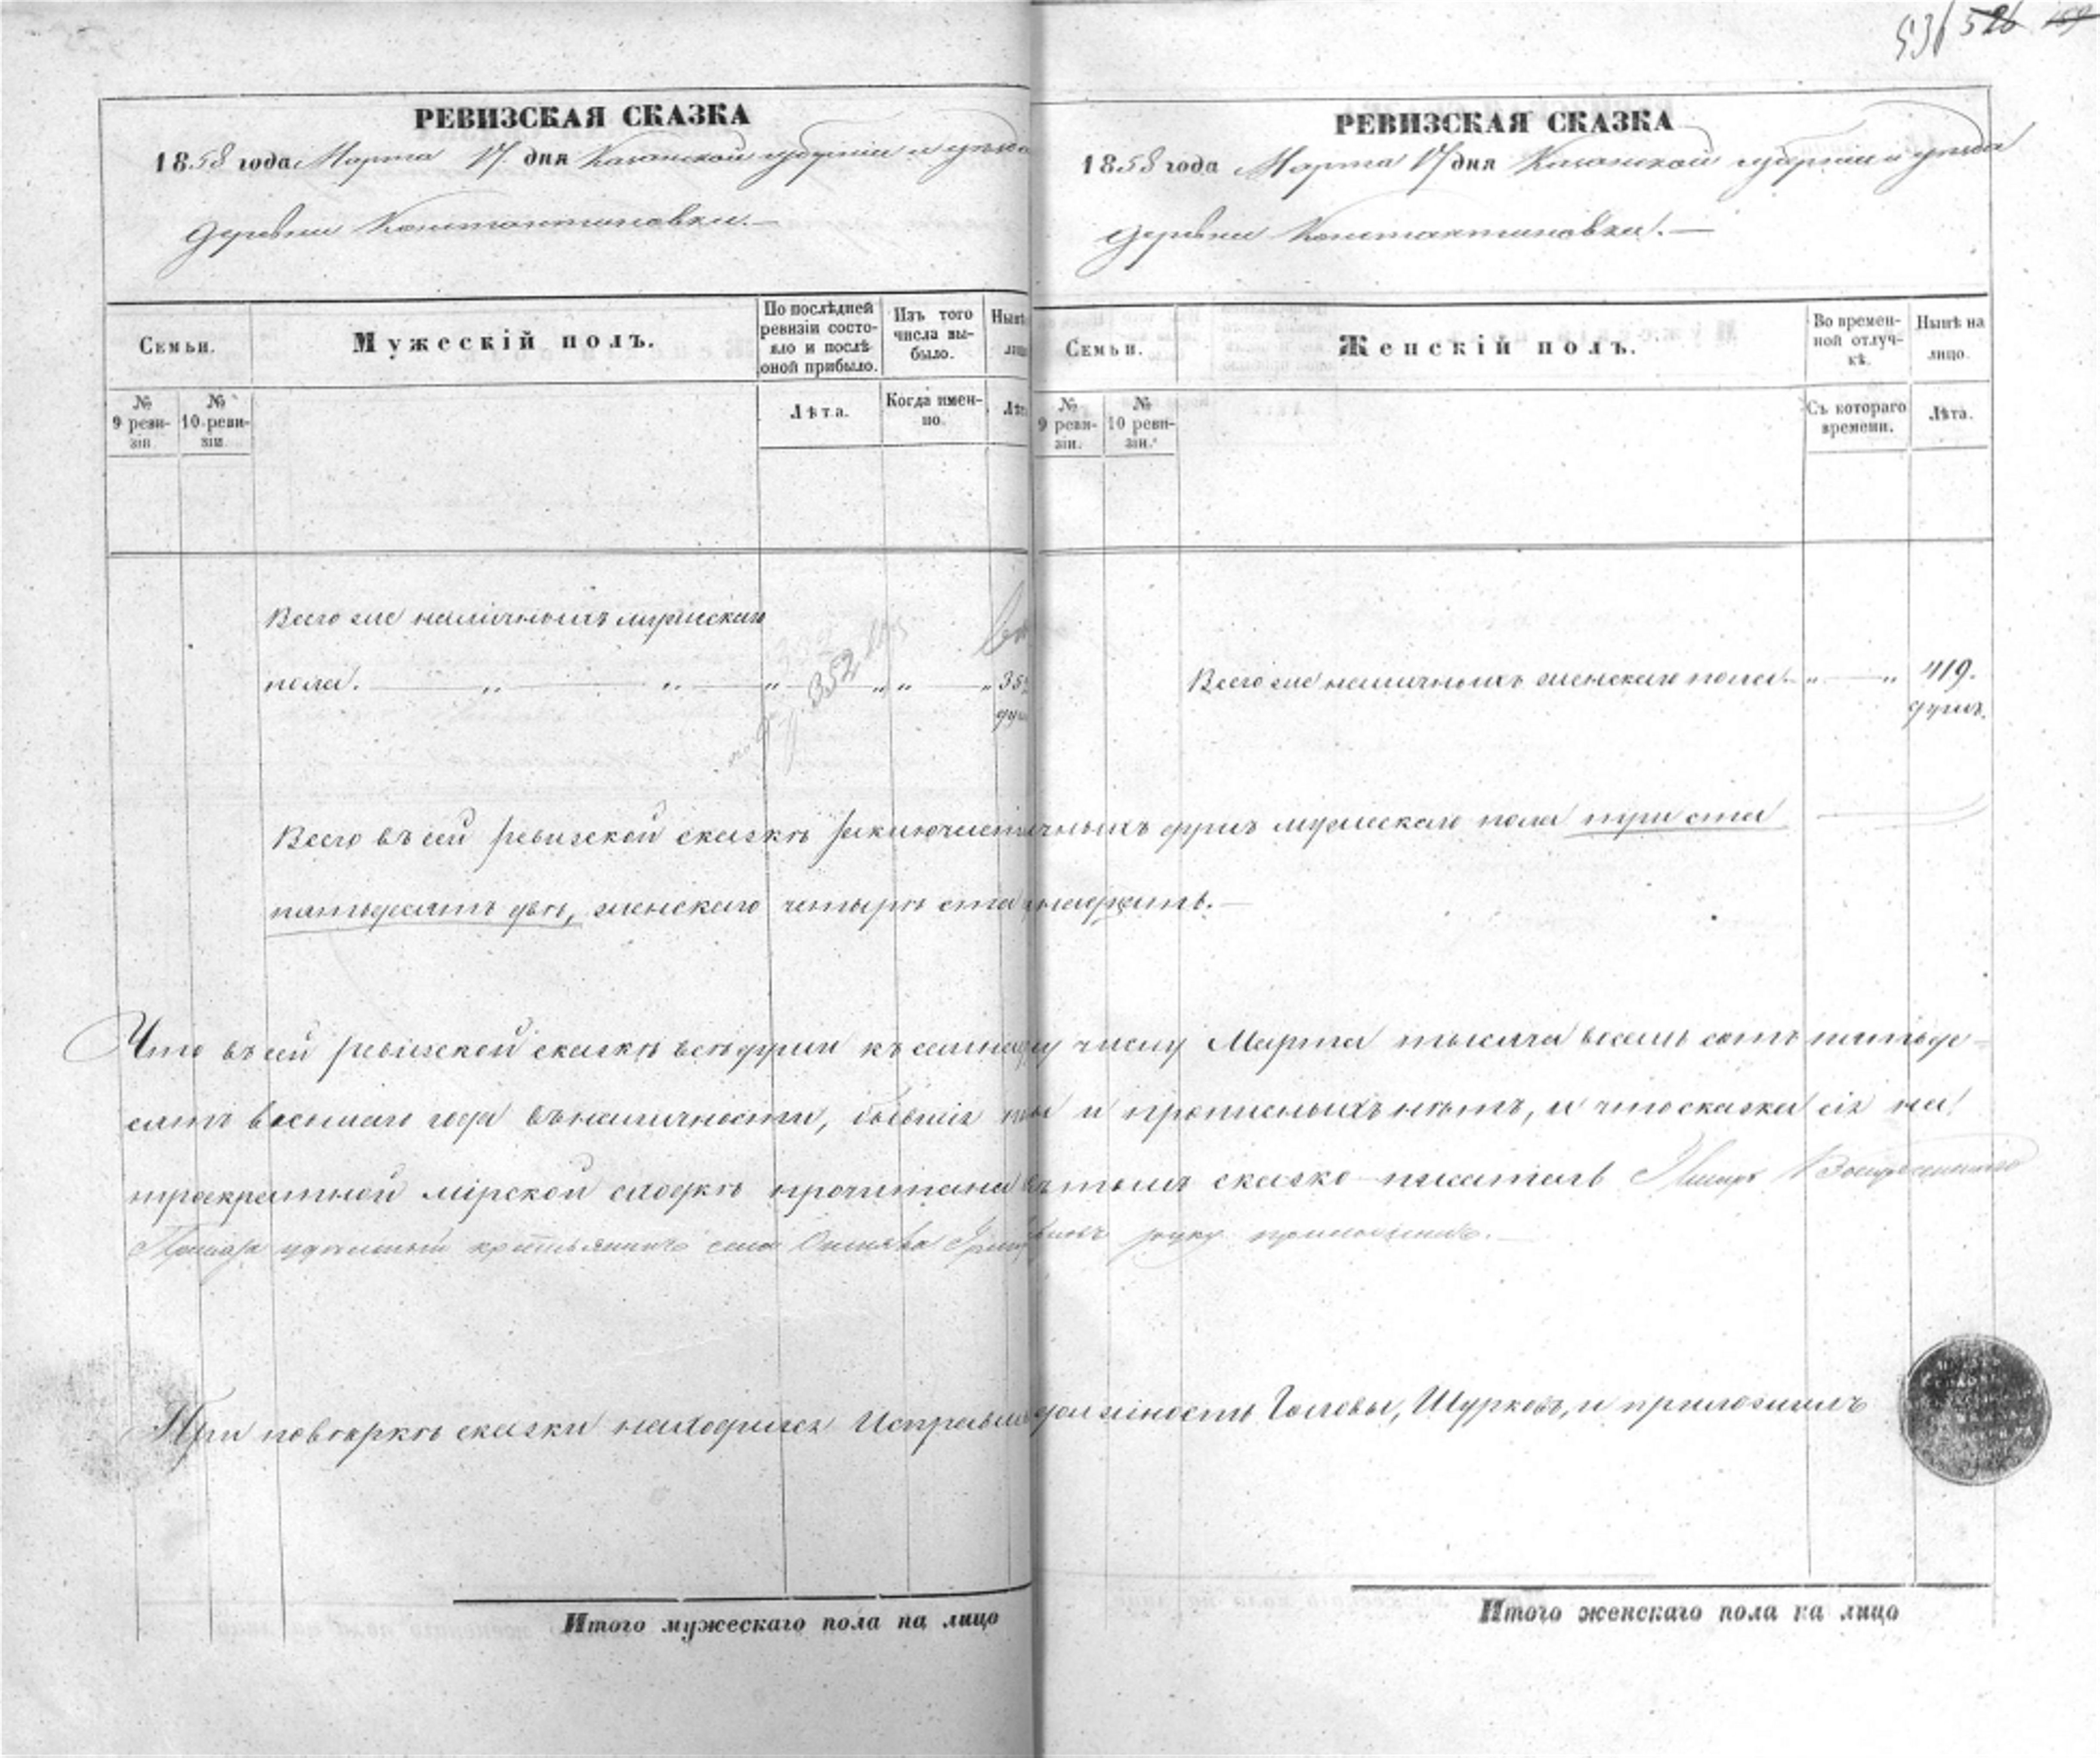 531 526
РЕВИЗСКАЯ СКАЗКА
1858 года Марта 17 дня Казанской губерніи и уѣзда
деревни Константиновки.
Семьи.
Мужескій полъ.
По послѣдней ревизіи состояло и послѣ оной прибыло.
Изъ того числа выбыло.
Нынѣ
№ 9 ревизіи.
№ 10 ревизіи.
Лѣта.
Когда именно.
Лѣт
Всего же наличныхъ мужескаго
пола. — „ — „ — „ — „ „ „ 352
352
Всего въ сей ревизской сказкѣ заключается
пятьдесятъ двѣ, женскаго четыре ста
Что въ сей ревизской сказкѣ всѣ души къ семна
сятъ восьмаго года въ наличности,
троекратной мірской сходкѣ прочитана
удѣльный крестьянинъ села
При повѣркѣ сказки находился Исправл
Итого мужескаго пола на лицо
РЕВИЗСКАЯ СКАЗКА
1858 года Марта 17 дня Казанской губерніи и уѣзда
деревни Константиновки.
Семьи.
Женскій полъ.
Во временной отлучкѣ.
Нынѣ на лицо.
№ 9 ревизіи.
№ 10 ревизіи.
Съ котораго времени.
Лѣта.
Всего же наличныхъ женскаго пола. — „ — „ 419.
душъ.
душъ мужескаго пола три ста
числу Марта тысяча восемь сотъ пятьде-
и прописныхъ нѣтъ, и что сказка сія на
въ томъ сказко-писатель
руку приложилъ.
должность Головы, Шурковъ, и приложилъ
Итого женскаго пола на лицо